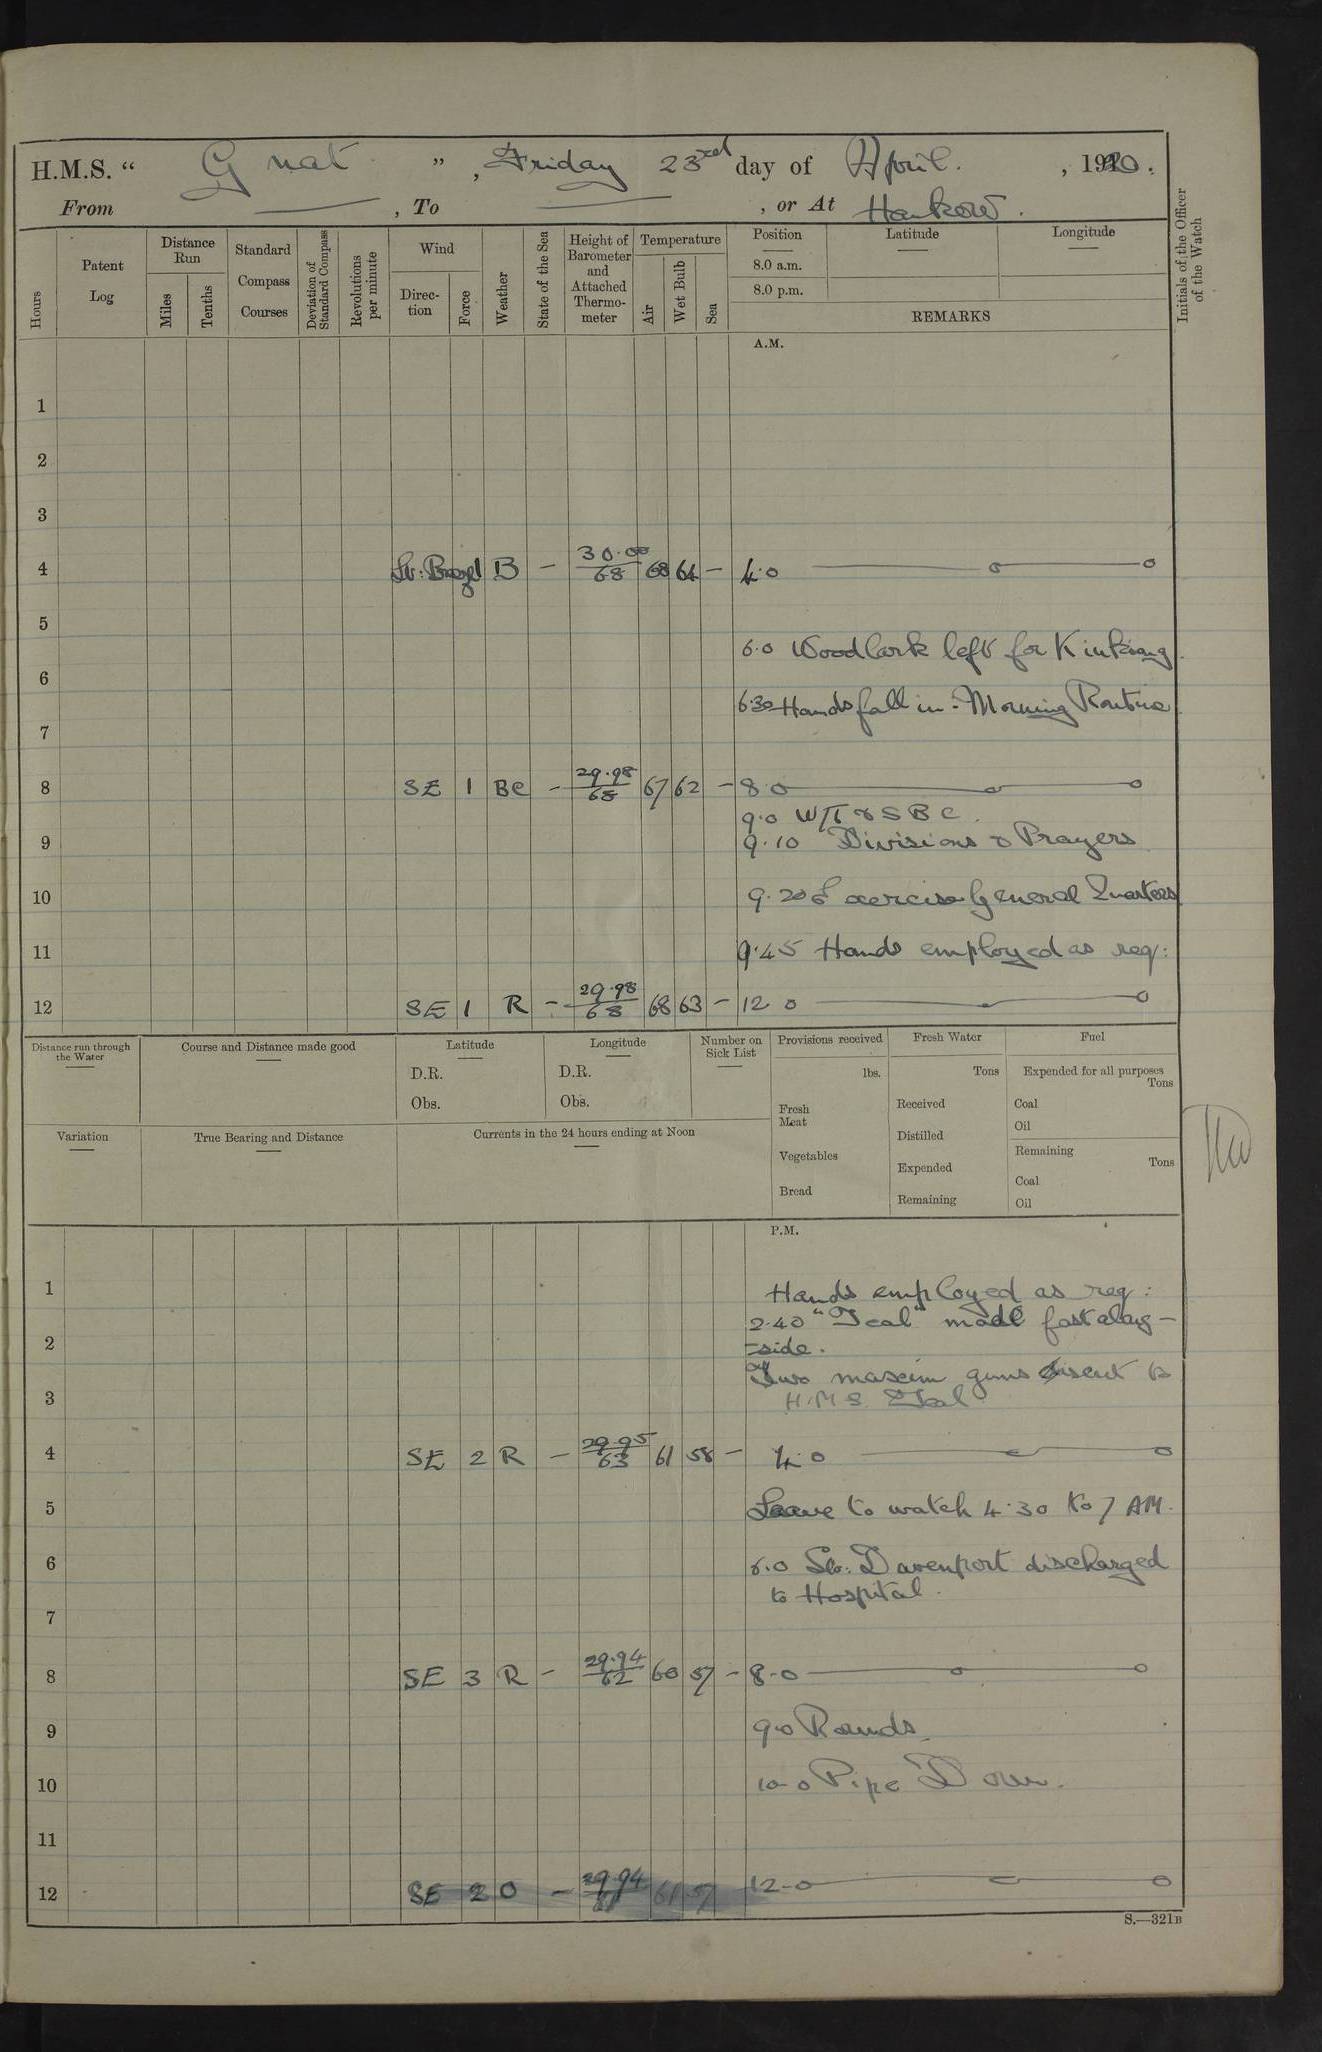 H.M.S. “ Gnat ” , Friday 23rd day of April. , 1920.
From , To , or At Hankow.
Hours
Patent Log
Distance Run
Miles
Tenths
Standard Compass Courses
Deviation of Standard Compass
Revolutions per minute
Wind
Direction
Force
Weather
State of the Sea
Height of Barometer and Attached Thermometer
Temperature
Air
Wet Bulb
Sea
Position
8.0 a.m.
8.0 p.m.
Latitude
Longitude
REMARKS
Initials of the Officer of the Watch
A.M.
1
2
3
4 B – 30.00/68 68 64 – 4.0
5
6.0 Woodlark left for Kinkiang
6
6.30 Hands fall in. Morning Routine
7
8 SE 1 BC – 29.98/68 67 62 – 8.0
9.0 W/T & S B C.
9 9.10 Divisions & Prayers
10 9.20 Exercise General Quarters
11 9.45 Hands employed as req:
12 SE 1 R – 29.98/68 68 63 – 12 0
Distance run through the Water
Course and Distance made good
Latitude
D.R.
Obs.
Longitude
D.R.
Obs.
Number on Sick List
Provisions received
lbs.
Fresh Meat
Vegetables
Bread
Fresh Water
Tons
Received
Distilled
Expended
Remaining
Fuel
Expended for all purposes
Tons
Coal
Oil
Remaining
Tons
Coal
Oil
Variation
True Bearing and Distance
Currents in the 24 hours ending at Noon
P.M.
1 Hands employed as req:
2.40 "Teal" made fast along-
2 -side.
Two maxim guns sent to
3 H.M.S. Teal
4 SE 2 R – 29.95/63 61 58 – 4.0
5 Leave to watch 4.30 to 7 AM.
6 6.0 Davenport discharged
to Hospital.
7
8 SE 3 R – 29.94/62 60 57 – 8.0
9 9.0 Rounds.
10 10.0 Pipe Down.
11
12 SE 2 O – 29.94/61 61 57 12.0
S.—321B